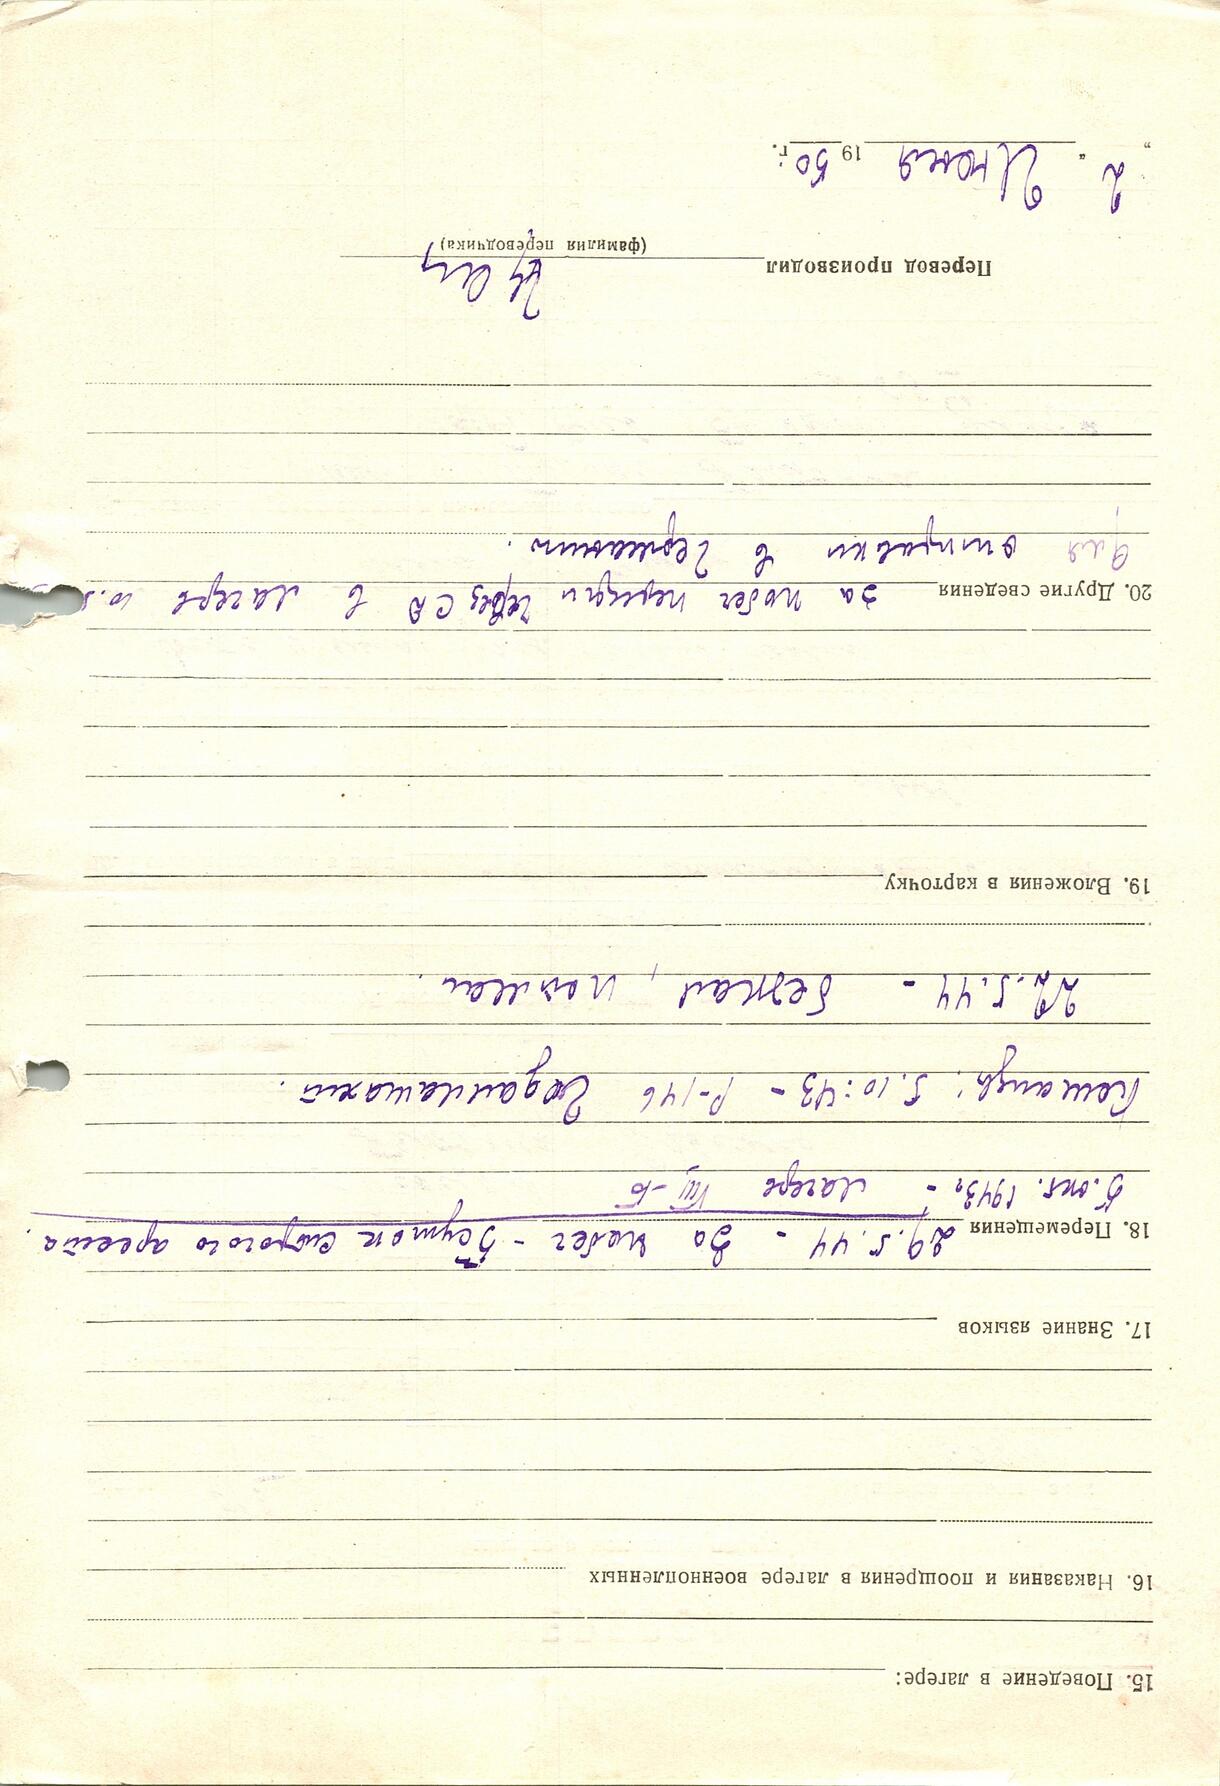 15. Поведение в лагере:
16. Наказания и поощрения в лагере военнопленных
17. Знание языков
29.5.44 - За побег - 7 суток строгого ареста.
18. Перемещения
5. окт. 1943г. - лагерь VIII-Б
Команды: 5.10.43 - Р-146
22.5.44 - бежал, пойман.
19. Вложения в карточку
20. Другие сведения За побег передан через СД в лагерь
для отправки в Германию.
Перевод производил
(фамилия переводчика)
"2" Июня 1950 г.